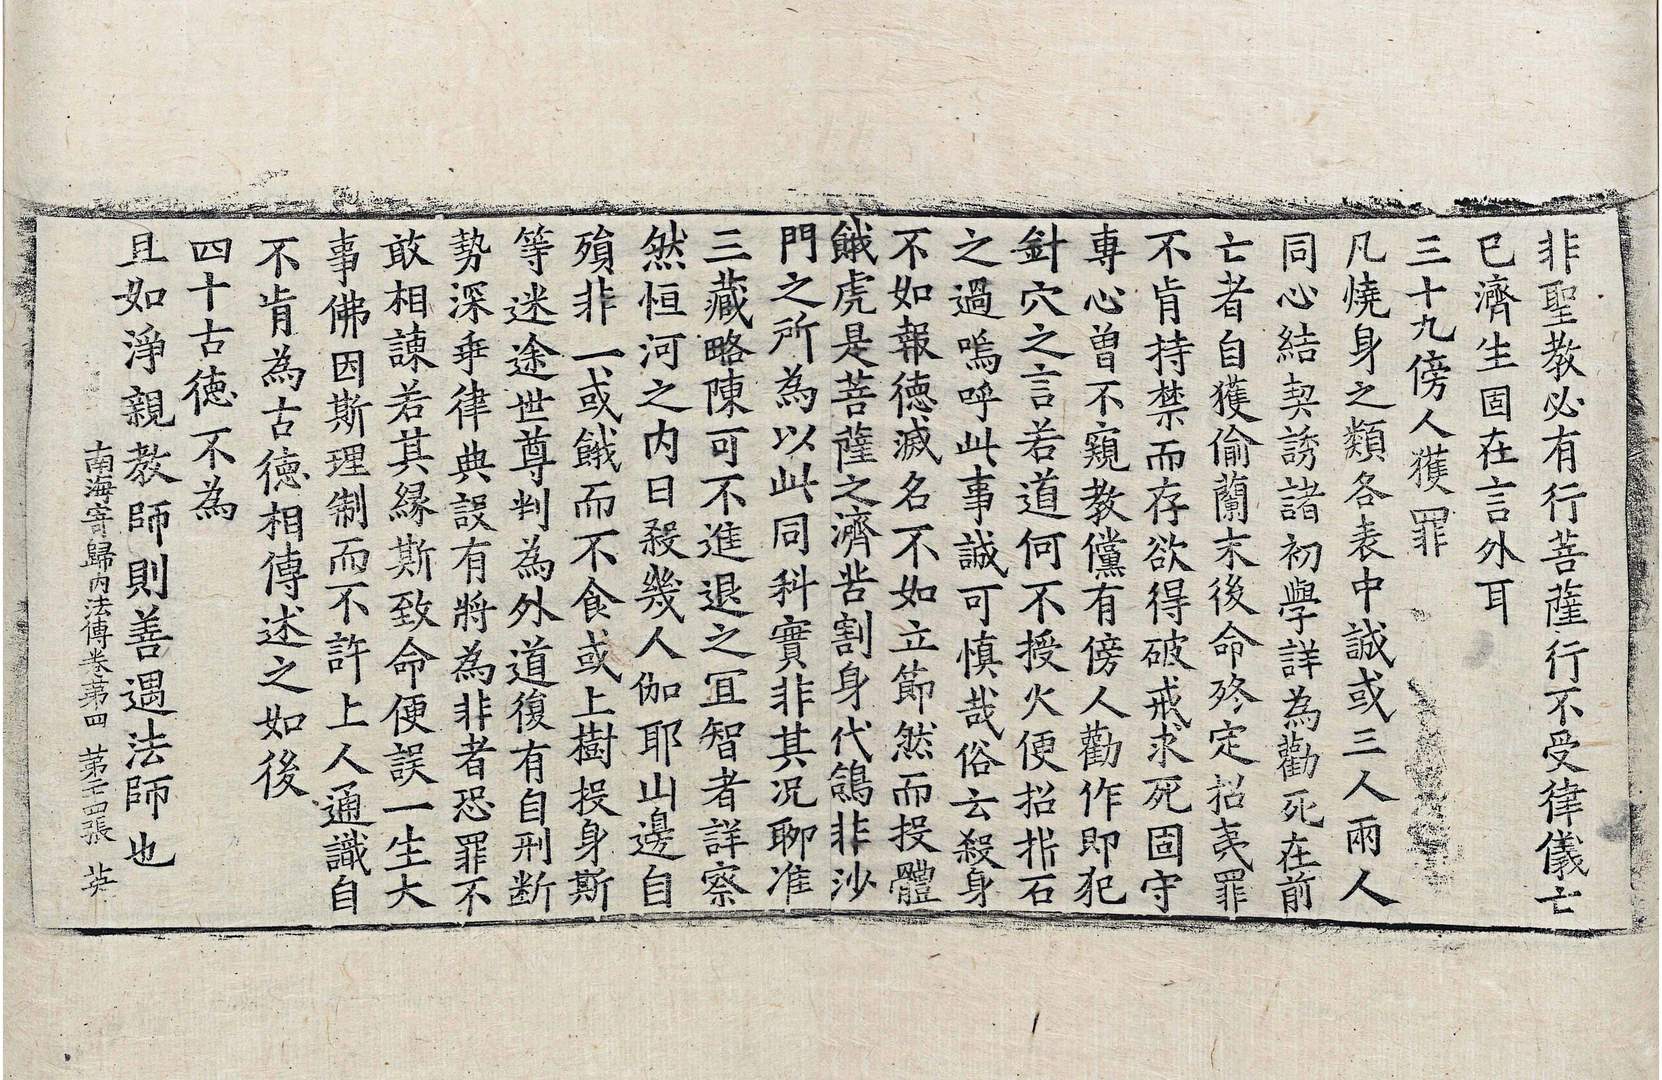 非聖教必有行菩薩行不受律儀亡
已濟生固在言外耳
三十九傍人獲罪
凡燒身之類各表中誠或三人兩人
同心結契誘諸初學詳為勸死在前
亡者自獲偷蘭末後命終定招夷罪
不肯持禁而存欲得破戒求死固守
專心曾不窺教儻有傍人勸作即犯
針穴之言若道何不授火便招㭰石
之過嗚呼此事誠可慎哉俗云殺身
不如報德滅名不如立節然而投體
餓虎是菩薩之濟苦割身代鴿非沙
門之所為以此同科實非其况聊准
三藏略陳可不進退之冝智者詳察
然恒河之内日殺幾人伽耶山邊自
殞非一或餓而不食或上樹投身斯
等迷途世尊判為外道復有自刑断
勢深乖律典設有將為非者恐罪不
敢相諫若其縁斯致命便誤一生大
事佛因斯理制而不許上人通識自
不肯為古德相傳述之如後
四十古德不為
且如淨親教師則善遇法師也
南海寄歸内法傳卷第四 第二十四張 英